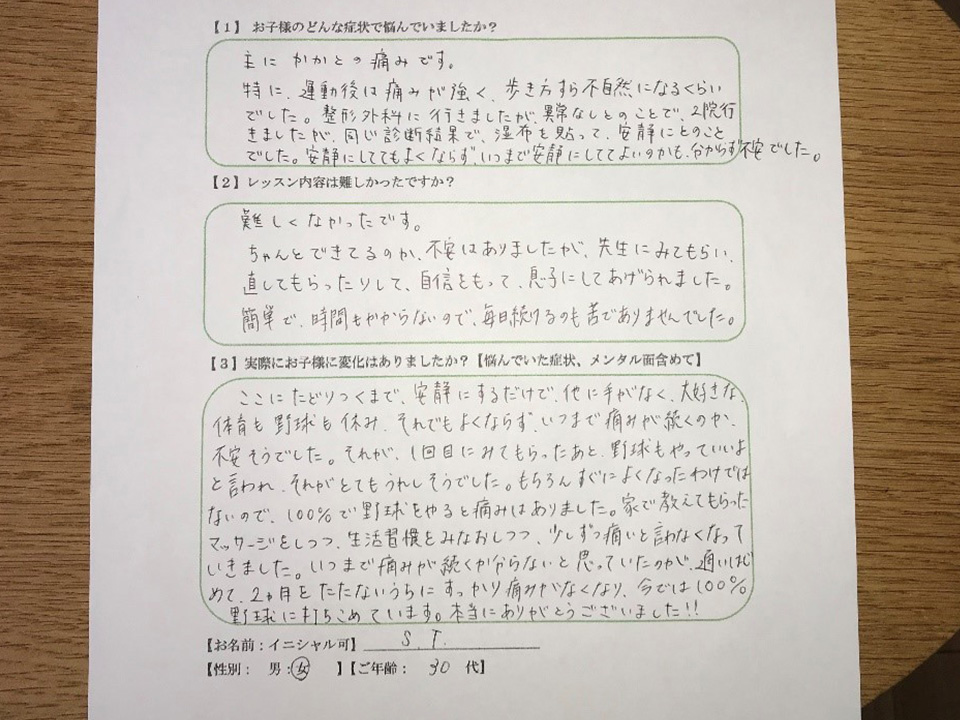 【1】 お子様のどんな症状で悩んでいましたか？
主に かかとの痛みです。
特に、運動後は痛みが強く、歩き方すら不自然になるくらい
でした。整形外科に行きましたが、異常なしとのことで、2院行
きましたが、同じ診断結果で、湿布を貼って、安静にとのこと
でした。安静にしててもよくならず、いつまで安静にしててよいのかも、分からず不安でした。
【2】レッスン内容は難しかったですか？
難しくなかったです。
ちゃんとできてるのか、不安はありましたが、先生にみてもらい、
直してもらったりして、自信をもって、息子にしてあげられました。
簡単で、時間もかからないので、毎日続けるのも苦でありませんでした。
【3】実際にお子様に変化はありましたか？【悩んでいた症状、メンタル面含めて】
ここにたどりつくまで、安静にするだけで、他に手がなく、大好きな
体育も野球も休み、それでもよくならず、いつまで痛みが続くのか、
不安そうでした。それが、1回目にみてもらったあと、野球もやっていいよ
と言われ、それがとてもうれしそうでした。もちろんすぐによくなったわけでは
ないので、100%で野球をやると痛みはありました。家で教えてもらった
マッサージをしつつ、生活習慣をみなおしつつ、少しずつ痛いと言わなくなって
いきました。いつまで痛みが続くか分らないと思っていたのが、通いはじ
めて、2ヵ月をたたないうちにすっかり痛みがなくなり、今では100%
野球に打ちこめています。本当にありがとうございました!!
【お名前：イニシャル可】 S.T.
【性別： 男：女 】【ご年齢： 30 代】